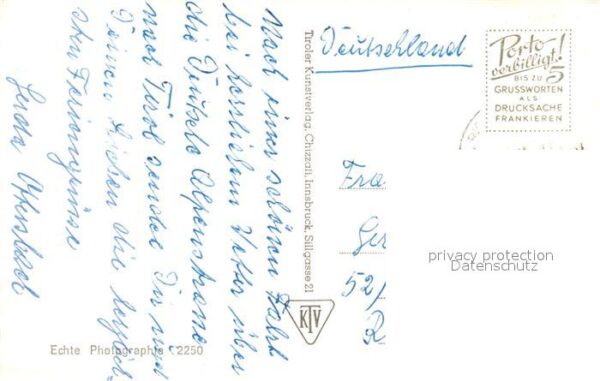 Nach einer schönen Fahrt
bei herrlichem Wetter über
die Deutsche Alpenstrasse
nach Tirol sendet Dir und
Deinen Lieben die herzlich-
sten Feriengrüsse
Gerda
Deutschland
Porto
verbilligt!
BIS ZU 5
GRUSSWORTEN
ALS
DRUCKSACHE
FRANKIEREN
Tiroler Kunstverlag, Chizzali, Innsbruck, Sillgasse 21
Fra
Ger
52/
R
privacy protection
Datenschutz
KTV
Echte Photographie 2250